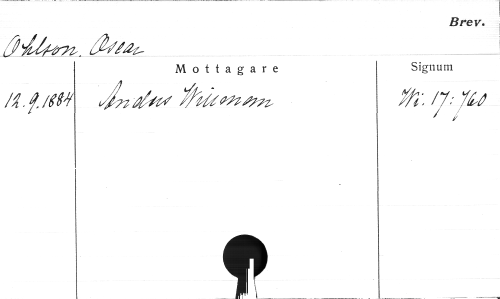 Brev.
Ohlson, Oscar
Mottagare
Signum
12.9.1884 Anders Willman Wi. 17:760